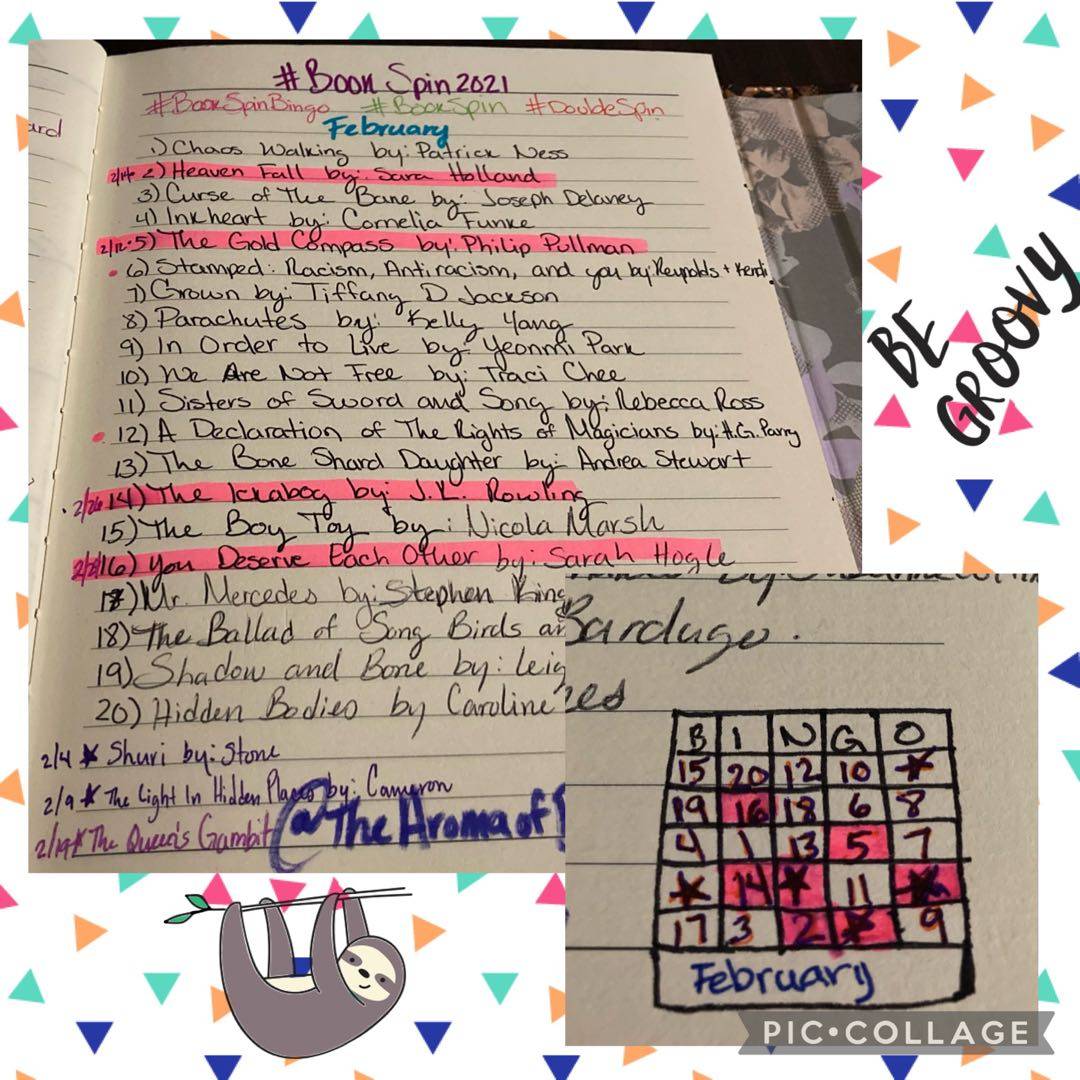 ard
#Book Spin 2021
#BookSpinBingo #BookSpin #DoubleSpin
February
1) Chaos Walking by: Patrick Ness
2/14 2) Heaven Fall by: Sara Holland
3) Curse of The Bane by: Joseph Delaney
4) Inkheart by: Cornelia Funke
2/12 • 5) The Gold Compass by: Philip Pullman
• 6) Stamped: Racism, Antiracism, and you by: Reynolds + Kendi
7) Grown by: Tiffany D Jackson
8) Parachutes by: Kelly Yang
9) In Order to Live by: Yeonmi Park
10) We Are Not Free by: Traci Chee
11) Sisters of Sword and Song by: Rebecca Ross
• 12) A Declaration of The Rights of Magicians by: H.G. Parry
13) The Bone Shard Daughter by: Andrea Stewart
• 2/26 14) The Ickabog by: J.K. Rowling
15) The Boy Toy by: Nicola Marsh
16) You Deserve Each Other by: Sarah Hogle
17) Mr. Mercedes by: Stephen King
18) The Ballad of Song Birds an
19) Shadow and Bone by: Leig
20) Hidden Bodies by Caroline
2/4 ★ Shuri by: Stone
2/9 ★ The Light In Hidden Places by: Cameron
2/19 ★ The Queen's Gambit
@The Aroma of
BE
GROOVY
Bardugo.
es
B I N G O
15 20 12 10 ★
19 16 18 6 8
4 1 13 5 7
★ 14 ★ 11 ★
17 3 2 ★ 9
February
PIC•COLLAGE